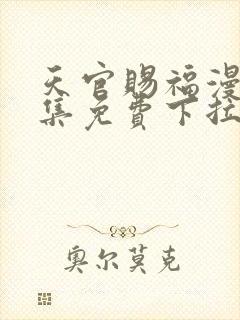 天官赐福漫
集免费下拉
奥尔莫克